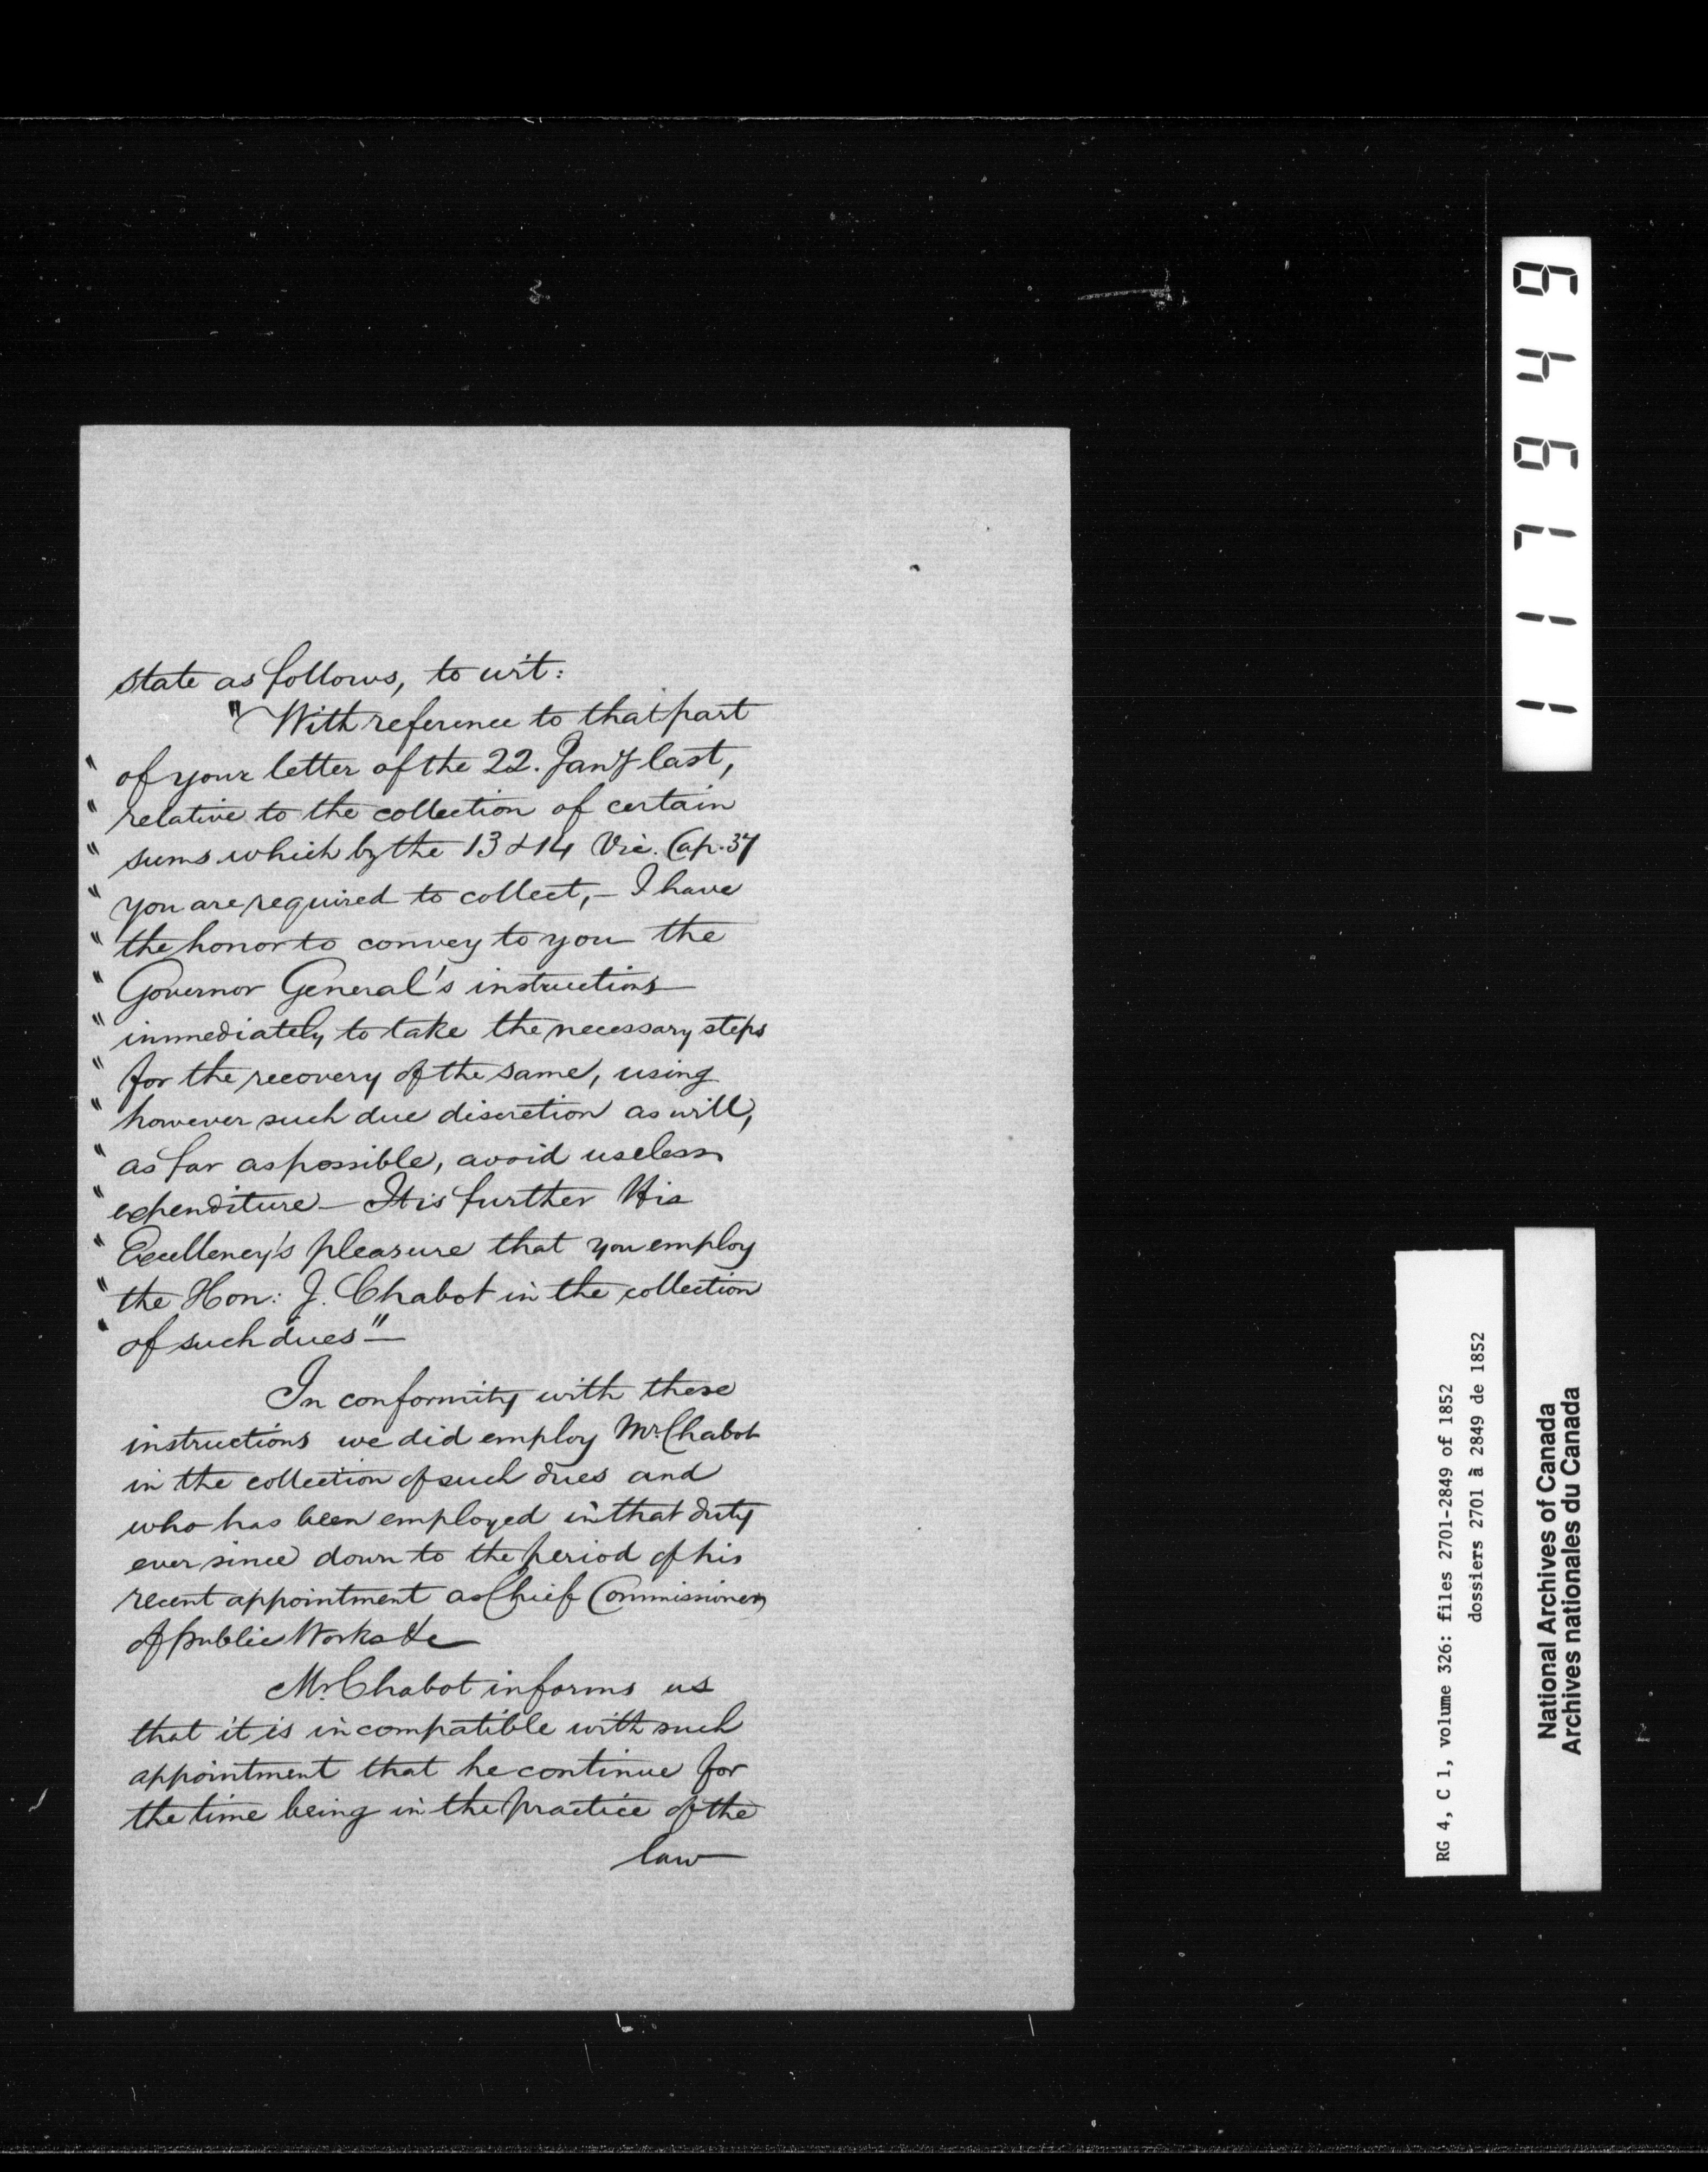 state as follows, to wit:
"With reference to that part
" of your letter of the 22. Jany last,
" relative to the collection of certain
" sums which by the 13 & 14 Vic. Cap. 37
" you are required to collect, — I have
" the honor to convey to you the
" Governor General's instructions
" immediately to take the necessary steps
" for the recovery of the same, using
" however such due discretion as will,
" as far as possible, avoid useless
" expenditure — It is further His
" Excellency's pleasure that you employ
" the Hon: J. Chabot in the collection
" of such dues" —
In conformity with these
instructions we did employ Mr. Chabot
in the collection of such dues and
who has been employed in that duty
ever since down to the period of his
recent appointment as Chief Commissioner
of public Works &c
Mr. Chabot informs us
that it is incompatible with such
appointment that he continue for
the time being in the practice of the
law
117949
RG 4, C 1, volume 326: files 2701-2849 of 1852
dossiers 2701 à 2849 de 1852
National Archives of Canada
Archives nationales du Canada